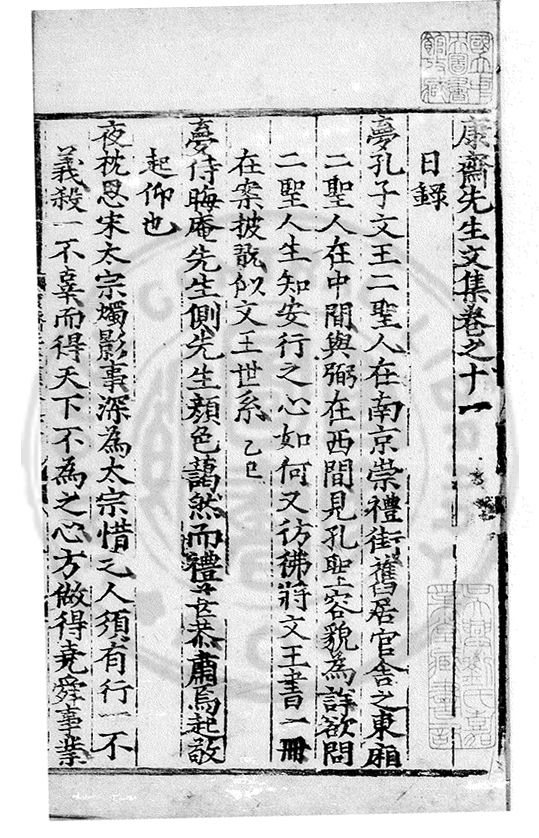 康齋先生文集卷之十一
日錄
夢孔子文王二聖人在南京崇禮街舊居官舎之東廂
二聖人在中間與弼在西間見孔聖容貌為詳欲問
二聖人生知安行之心如何又彷彿將文王書一冊
在案披翫似文王世系乙巳
夢侍晦庵先生側先生顏色藹然而禮甚恭肅焉起敬
起仰也
夜枕思宋太宗燭影事深為太宗惜之人須有行一不
義殺一不辜而得天下不為之心方做得堯舜事業